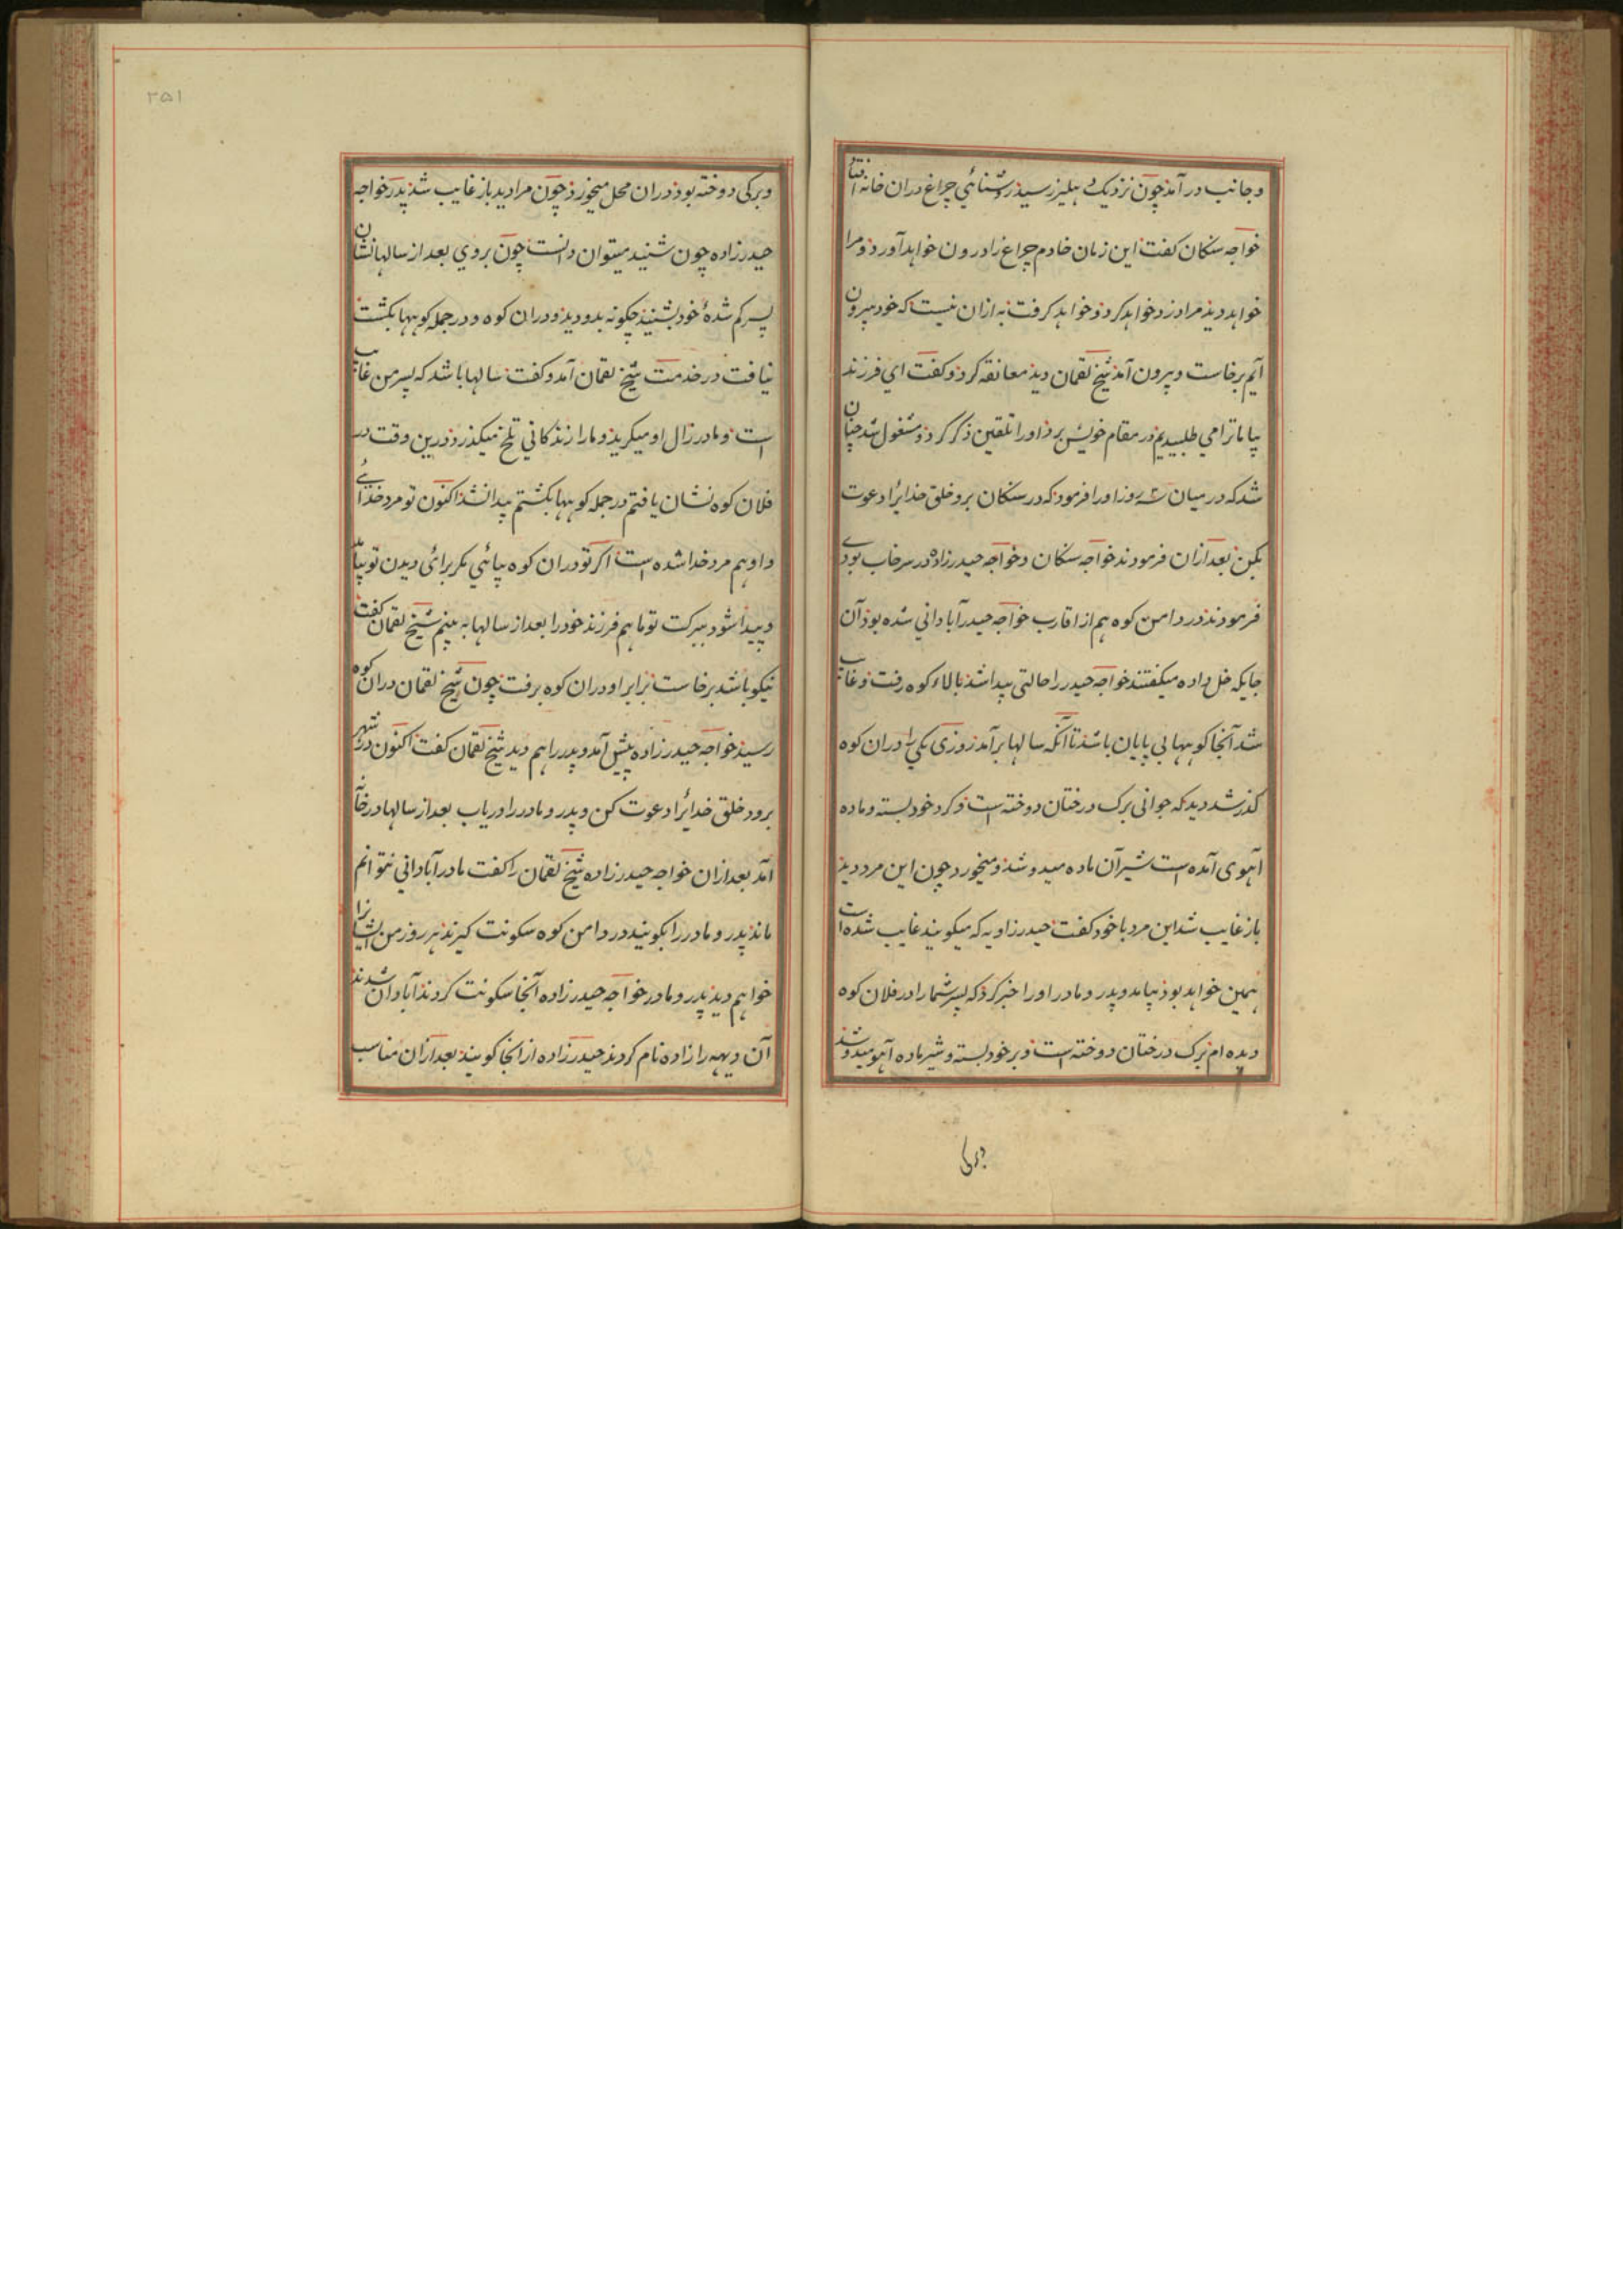 و جانب در آمد چون نزدیک دهلیز رسید روشنائی چراغ دران خانه افتاد
خواجه سنکان کفت این زمان خادم چراغ را درون خواهد آورد و مرا
خواهد دید مرا دزد خواهد کرد و خواهد کرفت به ازان نیست که خود بیرون
آیم برخاست و بیرون آمد شیخ لقمان دید معانقه کرد و کفت ای فرزند
بیا ما ترا می طلبیدیم در مقام خویش برد او را تلقین ذکر کرد و مشغول شد چنان
شد که در میان روز او را فرمود که در سنکان برو خلق خدایرا دعوت
بکن بعد ازان فرمودند خواجه سنکان و خواجه حیدر زاده در سرخاب بودی
فرمودند در دامن کوه هم از اقارب خواجه حیدر آبادانی شده بود آن
جایکه خل داده میکفتند خواجه حیدر را حالتی پیدا شد بالاء کوه رفت و غایب
شد آنجا کوهها بی پایان باشد تا آنکه سالها برآمد روزی یکی را دران کوه
کذر شد دید که جوانی برک درختان دوخته است و کرد خود بسته و ماده
آهوی آمده است شیر آن ماده میدوشد و میخورد چون این مرد دید
باز غایب شد این مرد با خود کفت حیدر زاویه که میکویند غایب شده است
همین خواهد بود بیامد و پدر و مادر او را خبر کرد که پسر شما را در فلان کوه
دیده ام برک درختان دوخته است و بر خود بسته و شیر ماده آهو میدوشد
وبرکی
۲۵۱
وبرکی دوخته بود دران محل میخورد چون مرا دید باز غایب شد پدر خواجه
حیدر زاده چون شنید میتوان دانست چون بر وی بعد از سالها نشان
پسر کم شدهٔ خود بشنید چکونه بدوید و دران کوه و در جمله کوهها بکشت
نیافت در خدمت شیخ لقمان آمد و کفت سالها باشد که پسر من غایب
است و مادر زال او میکرید و ما را زندکانی تلخ میکذرد درین وقت در
فلان کوه نشان یافتم در جمله کوهها بکشتم پیدا نشد اکنون تو مرد خدائی
و او هم مرد خدا شده است اکر تو دران کوه بیائی مکر برائی دیدن تو بیاید
و پیدا شود ببرکت تو ما هم فرزند خود را بعد از سالها به بینم شیخ لقمان کفت
نیکو باشد برخاست برابر او دران کوه برفت چون شیخ لقمان دران کوه
رسید خواجه حیدر زاده پیش آمد و پدر را هم دید شیخ لقمان کفت اکنون در شهر
برو و خلق خدایرا دعوت کن و پدر و مادر را دریاب بعد از سالها در خانه
آمد بعد ازان خواجه حیدر زاده شیخ لقمان را کفت ما در آبادانی نتوانم
ماند پدر و مادر را بکویند در دامن کوه سکونت کیرند هر روز من ایشانرا
خواهم دید پدر و مادر خواجه حیدر زاده آنجا سکونت کردند آبادان شدند
آن دیهه را زاده نام کردند حیدر زاده از انجا کویند بعد ازان مناسب